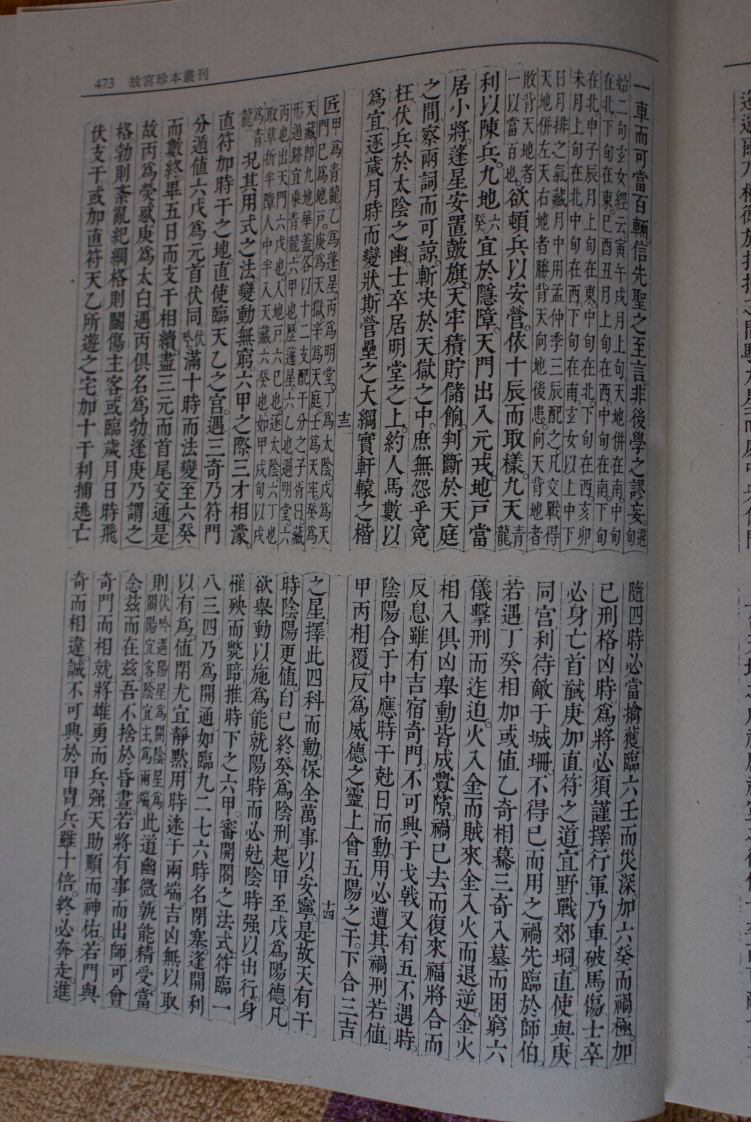 473 故宮珍本叢刊
一車而可當百輛。信先聖之至言。非後學之謬妄。遁甲
始二句玄女經云寅午戌月上旬天地併在南。中旬
在北下旬在東。巳酉丑月上旬在西中旬在南下旬
在北申子辰月上旬在東中旬在北。下旬在西亥卯
未月上旬在北中旬在西下旬在南玄女以上中下
日月排之氣藏月中用孟仲季三辰配之凡交戰得
天地併左天右地者勝背天向地後患向天背地者
敗背天地者
一以當百也。欲頓兵以安營。依十辰而取樣。九天青龍
利以陳兵。九地六癸宜於隱障。天門出入元戎。地戶當
居小將。蓬星安置鼓旗。天牢積貯儲餉。判斷於天庭
之間。察兩詞而可諒。斬決於天獄之中。庶無怨乎冤
枉。伏兵於太陰之幽。士卒居明堂之上。約人馬數以
為宜。逐歲月時而變狀。斯營壘之大綱實軒轅之楷
十三
匠。甲為青龍乙為蓬星。丙為明堂。丁為太陰戊為天
門巳為地戶。庚為天獄。辛為天庭。壬為天牢癸為
天藏即九地華蓋各以十二支配于分之子胥曰藏
形遁跡宜乘青龍。六甲也歷蓬星六乙也過明堂。六
丙也出天門六戊也。入地戶六巳也逐太陰六丁也
取草折半障人中半入天藏六癸也如甲戌旬以戌
為青
龍。況其用式之法。變動無窮。六甲之際。三才相濛。
直符加時干之地。直使臨天乙之宮。遇三奇乃符門
分遁值六戊為元首伏同伏吟滿十時而法變至六癸
而數終畢五日而支干相續盡三元而首尾交通是
故丙為熒惑庚為太白遇丙俱名為勃逢庚乃謂之
格勃則紊亂紀綱格則關傷主客或臨歲月日時飛
伏支干或加直符天乙所遊之宅加十干利捕逃亡
隨四時必當擒獲臨六壬而災深加六癸而禍極。加
己刑格凶時為將必須謹擇行軍乃車破馬傷士卒
必身亡首馘庚加直符之道。宜野戰郊埛。直使與庚
同宮利待敵于城堋。不得已而用之禍先臨於師伯。
若遇丁癸相加或值乙奇相幕三奇入墓而困窮六
儀擊刑而迮迫。火入金而賊來金入火而退逆金火
相入俱凶舉動皆成釁隙。禍已去而復來。福將合而
反息雖有吉宿奇門。不可興于戈戟又有五不遇時。
陰陽合于中應時干尅日而動。用必遭其禍刑若值
甲丙相覆。反為威德之靈上會五陽之干。下合三吉
十四
之星擇此四科而動。保全萬事以安寧。是故天有十
時陰陽更值自巳終癸為陰刑。起甲至戊為陽德。凡
欲舉動以施為能就陽時而必尅陰時强以出行。身
罹殃而斃踣。推時下之六甲。審開閤之法式。符臨一
八三四乃為開通如臨九二七六時名閉塞逢開利
以有為值閉尤宜靜黙。用時迷于兩端吉凶無以取
則伏吟遇陽星為開陰星為
關陽宜客陰宜主為兩端。此道幽微孰能精受當
念茲而在茲吾不捨於昏晝若將有事而出師可會
奇門而相就將雄勇而兵强。天助順而神佑。若門與
奇而相違。誠不可興於甲冑。兵雖十倍。終必奔走。進